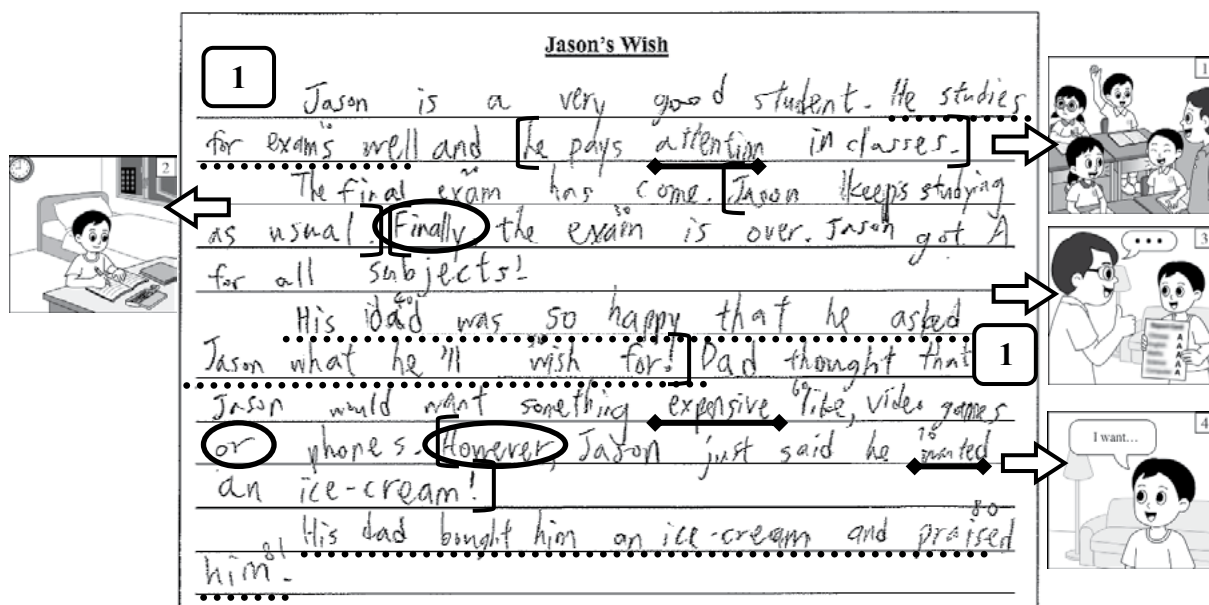 Jason's Wish
1
Jason is a very good student. He studies
for exams well and he pays attention in classes.
The final exam has come. Jason keeps studying
as usual. Finally the exam is over. Jason got A
for all subjects!
His dad was so happy that he asked
Jason what he'll wish for! Dad thought that
1
Jason would want something expensive like, video games
or phones. However, Jason just said he wanted
an ice-cream!
His dad bought him an ice-cream and praised
him.
10
20
30
40
50
60
70
80
81
1
2
3
...
A
A
A
A
AA
4
I want...